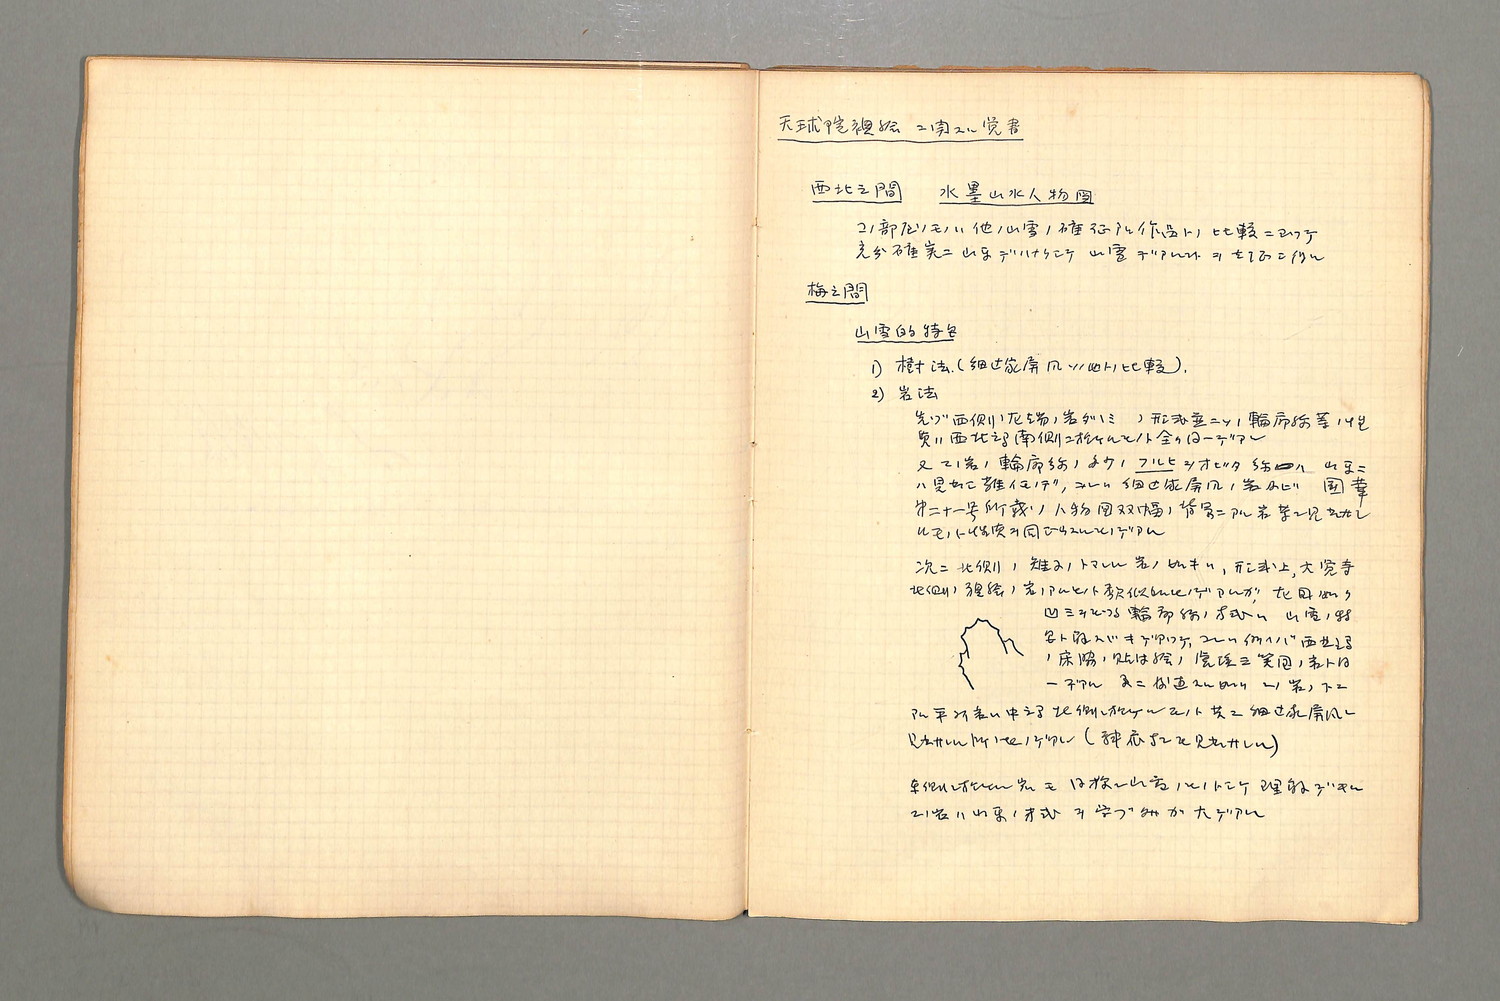 天球院襖絵ニ関スル覚書
西北之間 水墨山水人物図
コノ部屋ノモノハ他ノ山雪ノ確証アル作品トノ比較ニヨツテ
充分確実ニ山楽デハナクシテ山雪デアルコトヲ
梅之間
山雪的特色
1) 樹法(細辻家屏風ソノ他ト比較).
2) 岩法
先ヅ西側ノ左端ノ岩ガソノ形式並ニソノ輪廓線等ノ性
質ハ西北之間南側ニ於ケルモノト全ク同一デアル
又コノ岩ノ輪廓線ノ多クノフルヒヲオビタ線ハ山楽ニ
ハ見出シ難イモノデ,コレハ細辻家屏風ノ岩及ビ國華
第二十一号所載ノ人物図双幅ノ背景ニアル岩等ニ見出サレ
ルモノト性質ヲ同ジウスルモノデアル
次ニ北側ノ雉子ノトマレル岩ノ如キハ,形式上,大覚寺
北側ノ襖絵ノ岩ノアルモノト類似セルモノデアルガ左図ノ如ク
凹ミヲモツ輪廓線ノ方式ハ山雪ノ特
色ト見ルベキデアツテ,コレハ例ヘバ西北之間
ノ床脇ノ貼付絵ノ虎渓三笑図ノ岩ト同
一デアル 更ニ
アル平ナ岩ハ中之間北側ニ於ケルモノト共ニ細辻家屏風ニ
見出サレル所ノモノデアル(
東側ニ於ケル岩モ同様ニ山雪ノモノトシテ理解デキル
コノ岩ハ山楽ノ方式ヲ学ブ所ガ大デアル